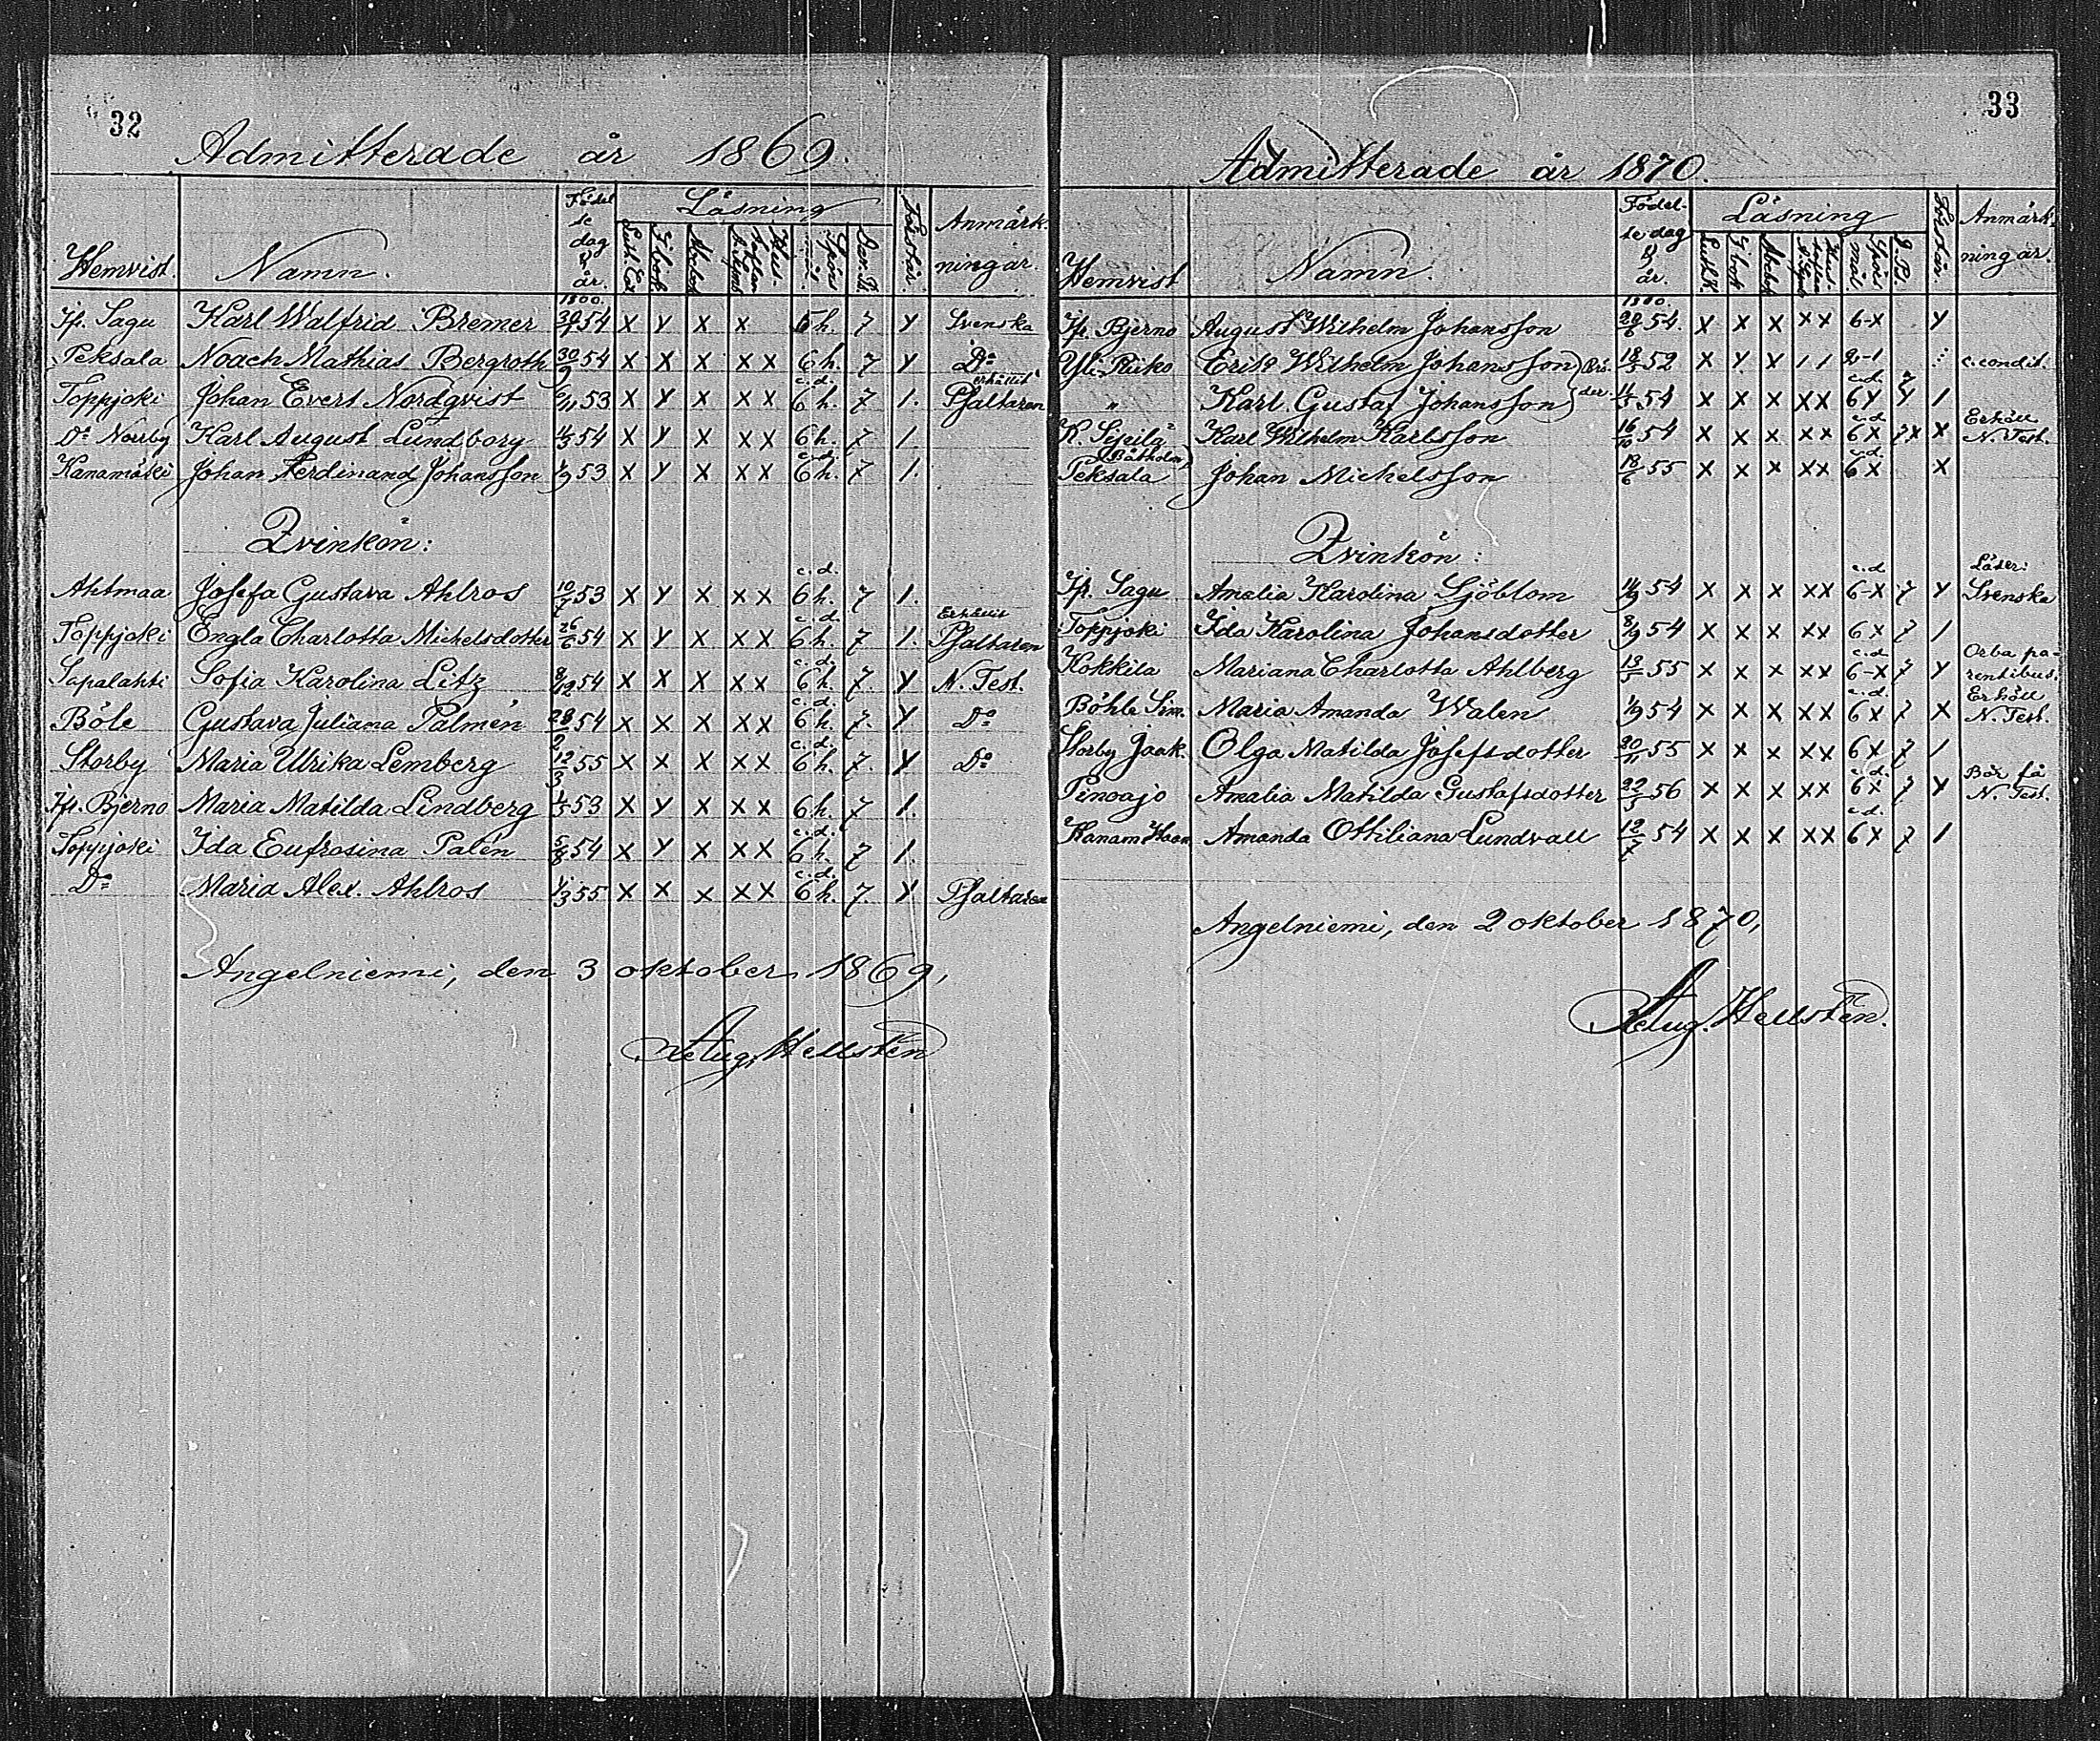 32
Admitterade år 1869.
Hemvist. Namn. Födelse dag & år. Läsning Förstår. Anmärkningar.
1800.
Yfr. Sagu Karl Walfrid Bremer 54 X Y X X 5 h. 7 Y Svenska
Peksala Noach Mathias Bergroth 30/9 54 X X X X X 6 h. 7 Y Do
c.d. erhållit
Toppjoki Johan Evert Nordqvist 6/11 53 X Y X X X 6 h. 7 1. Psaltaren
Do Norrby Karl August Lundborg 54 X Y X X X 6 h. 7 1.
c.d.
Kanamäki Johan Ferdinand Johansson 1/9 53 X Y X X X 6 h. 7 1.
Qvinkön:
c.d.
Ahtmaa Josefa Gustava Ahlros 10/7 53 X Y X X X 6 h. 7 1.
c.d. Erhållit
Toppjoki Engla Charlotta Michelsdotter 26/6 54 X Y X X X 6 h. 7 1. Psaltaren
c.d.
Sapalahti Sofia Karolina Litz 8/12 54 X X X X X 6 h. 7. Y N. Test.
c.d.
Böle Gustava Juliana Palmén 28/2 54 X X X X X 6 h. 7. Y Do
c.d.
Storby Maria Ulrika Lemberg 12/3 55 X X X X X 6 h. 7. Y Do
Yfr. Bjerno Maria Matilda Lindberg 1/5 53 X Y X X X 6 h. 7 1.
c.d.
Toppjoki Ida Eufrosina Palén 5/8 54 X Y X X X 6 h. 7 1.
c.d.
Do Maria Alex. Ahlros 1/3 55 X X X X X 6 h. 7. Y Psaltaren
Angelniemi, den 3 oktober 1869,
Aug. Hellstén
33
Admitterade år 1870.
Hemvist Namn. Födelsedag & år. Läsning Förstår. Anmärkningar.
1800.
Yfr. Bjerno August Wilhelm Johansson 28/6 54. X X X X X 6-X Y
Yli-Riiko Erik Wilhelm Johansson 18/5 52 X Y X 1 1 2-1 c. condit.
" Karl Gustaf Johansson Bröder. 54 X X X X X 6 Y Y 1
c.d. Erhöll
K. Sipilä Karl Wilhelm Karlsson 16/10 54 X X X X X 6 X 7X X N. Test.
(Båtholm) c.d.
Teksala Johan Michelsson 18/6 55 X X X X X 6 X X
Qvinkön:
c.d. Läser:
Yfr. Sagu Amalia Karolina Sjöblom 14/9 54 X X X X X 6-X 7 Y Svenska
Toppjoki Ida Karolina Johansdotter 8/9 54 X X X X X 6 X 7 1
c.d. Orba pa-
Kokkila Mariana Charlotta Ahlberg 13/5 55 X X X X X 6-X 7 Y rentibus.
c.d. Erhöll
Böhle Sim. Maria Amanda Walen 1/9 54 X X X X X 6 X 7 X N. Test.
Storby Jaak. Olga Matilda Josefsdotter 30/11 55 X X X X X 6 X 7 1
c.d. Bör få
Pinoajo Amalia Matilda Gustafsdotter 22/5 56 X X X X X 6 X 7 Y N. Test.
c.d.
Kanam Haan Amanda Ottiliana Lundvall 12/7 54 X X X X X 6 X 7 1
Angelniemi, den 2 oktober 1870,
Aug. Hellstén.